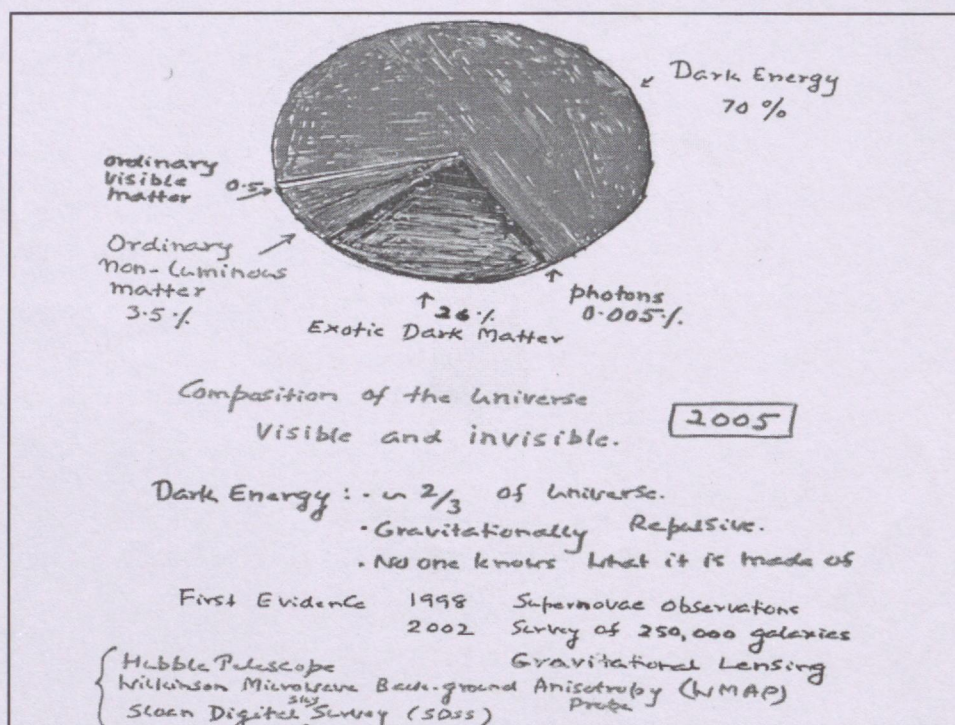 Dark Energy
70 %
ordinary
visible
matter
0.5
Ordinary
non-luminous
matter
3.5 %
photons
0.005 %
26 %
Exotic Dark Matter
Composition of the Universe
Visible and invisible.
2005
Dark Energy : · ~ 2/3 of Universe.
· Gravitationally Repulsive.
· No one knows what it is made of
First Evidence 1998 Supernovae observations
2002 Survey of 250,000 galaxies
Gravitational Lensing
Hubble Telescope
Wilkinson Microwave Back-ground Anisotropy (WMAP)
Probe
Sky
Sloan Digital Survey (SDSS)